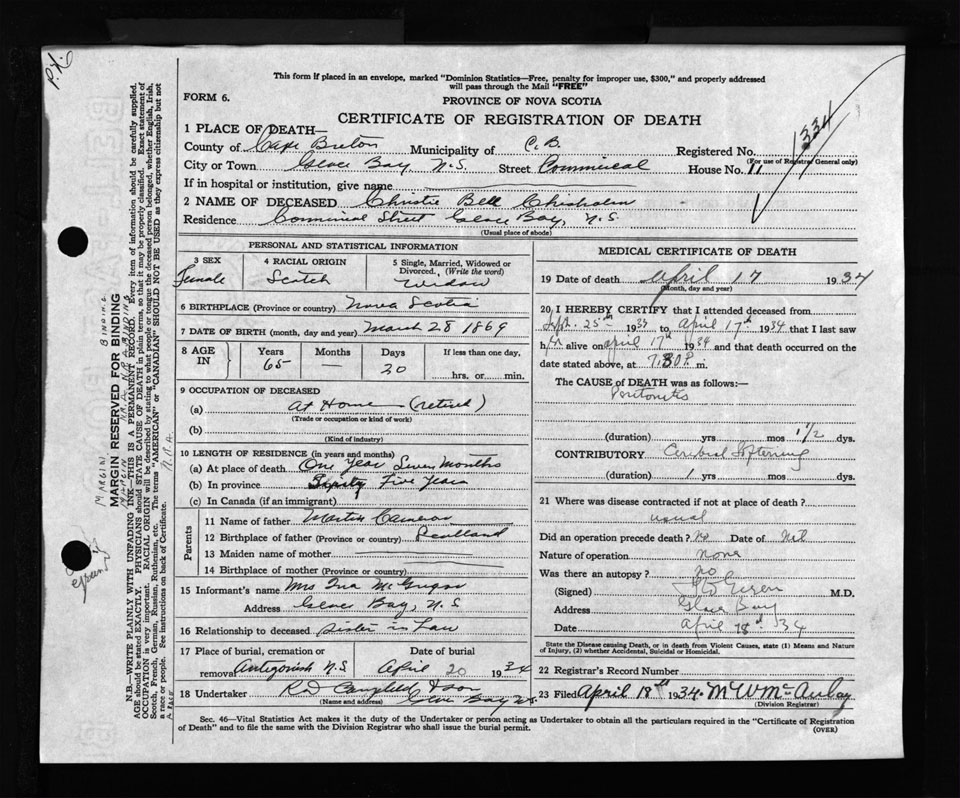 P.X.
This form if placed in an envelope, marked "Dominion Statistics—Free, penalty for improper use, $300," and properly addressed
will pass through the Mail "FREE"
FORM 6.
PROVINCE OF NOVA SCOTIA
CERTIFICATE OF REGISTRATION OF DEATH
1334
1 PLACE OF DEATH—
County of Cape Breton Municipality of C.B. Registered No.
(For use of Registrar General only)
City or Town Glace Bay, N.S. Street Commercial House No. 11
If in hospital or institution, give name
2 NAME OF DECEASED Christie Bell Chisholm
Residence Commercial Street Glace Bay, N.S.
(Usual place of abode)
PERSONAL AND STATISTICAL INFORMATION
3 SEX 4 RACIAL ORIGIN 5 Single, Married, Widowed or
Divorced, (Write the word)
Female Scotch Widow
6 BIRTHPLACE (Province or country) Nova Scotia
7 DATE OF BIRTH (month, day and year) March 28 1869
8 AGE IN Years Months Days If less than one day,
65 — 20 hrs. or min.
9 OCCUPATION OF DECEASED
(a) At Home (retired)
(Trade or occupation or kind of work)
(b)
(Kind of industry)
10 LENGTH OF RESIDENCE (in years and months)
(a) At place of death One Year Seven Months
(b) In province Five Years
(c) In Canada (if an immigrant)
Parents
11 Name of father Martin Cameron
12 Birthplace of father (Province or country) Scotland
13 Maiden name of mother
14 Birthplace of mother (Province or country)
15 Informant's name Mrs Ina McGregor
Address Glace Bay, N.S
16 Relationship to deceased Sister in Law
17 Place of burial, cremation or Date of burial
removal Antigonish N.S April 20 1934
18 Undertaker Campbell & Son
(Name and address) Glace Bay N.S.
MEDICAL CERTIFICATE OF DEATH
19 Date of death April 17 1934
(Month, day and year)
20 I HEREBY CERTIFY that I attended deceased from
Sept. 25th 1933 to April 17th 1934 that I last saw
her alive on April 17th 1934 and that death occurred on the
date stated above, at 7.30 P m.
The CAUSE OF DEATH was as follows:—
Peritonitis
(duration) yrs mos 1 1/2 dys.
CONTRIBUTORY Cerebral Softening
(duration) 1 yrs mos dys.
21 Where was disease contracted if not at place of death?
usual
Did an operation precede death? No Date of Nil
Nature of operation None
Was there an autopsy? no
(Signed) Green M.D.
Address Glace Bay
Date April 18th 34
State the Disease causing Death, or in death from Violent Causes, state (1) Means and Nature
of Injury, (2) whether Accidental, Suicidal or Homicidal.
22 Registrar's Record Number
23 Filed April 18th 1934 McAulay
(Division Registrar)
Sec. 46—Vital Statistics Act makes it the duty of the Undertaker or person acting as Undertaker to obtain all the particulars required in the "Certificate of Registration
of Death" and to file the same with the Division Registrar who shall issue the burial permit.
(OVER)
MARGIN RESERVED FOR BINDING
N.B.—WRITE PLAINLY WITH UNFADING INK—THIS IS A PERMANENT RECORD. Every item of information should be carefully supplied.
AGE should be stated EXACTLY. PHYSICIANS should STATE CAUSE OF DEATH in plain terms, so that it may be properly classified. Exact statement of
OCCUPATION is very important. RACIAL ORIGIN will be described by stating to what people or tongue the deceased person belonged, whether English, Irish,
Scotch, French, German, Russian, Ruthenian, etc. The terms "AMERICAN" or "CANADIAN" SHOULD NOT BE USED as they express citizenship but not
a race or people. See instructions on back of Certificate.